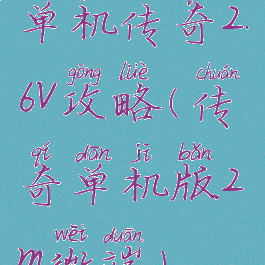 单机传奇2.
gōng lüè chuán
6V攻略(传
qí dān jī bǎn
奇单机版2
wēi duān
m微端)